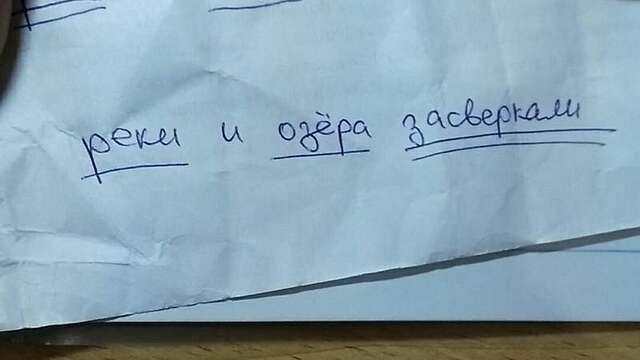 реки и озёра засверкали